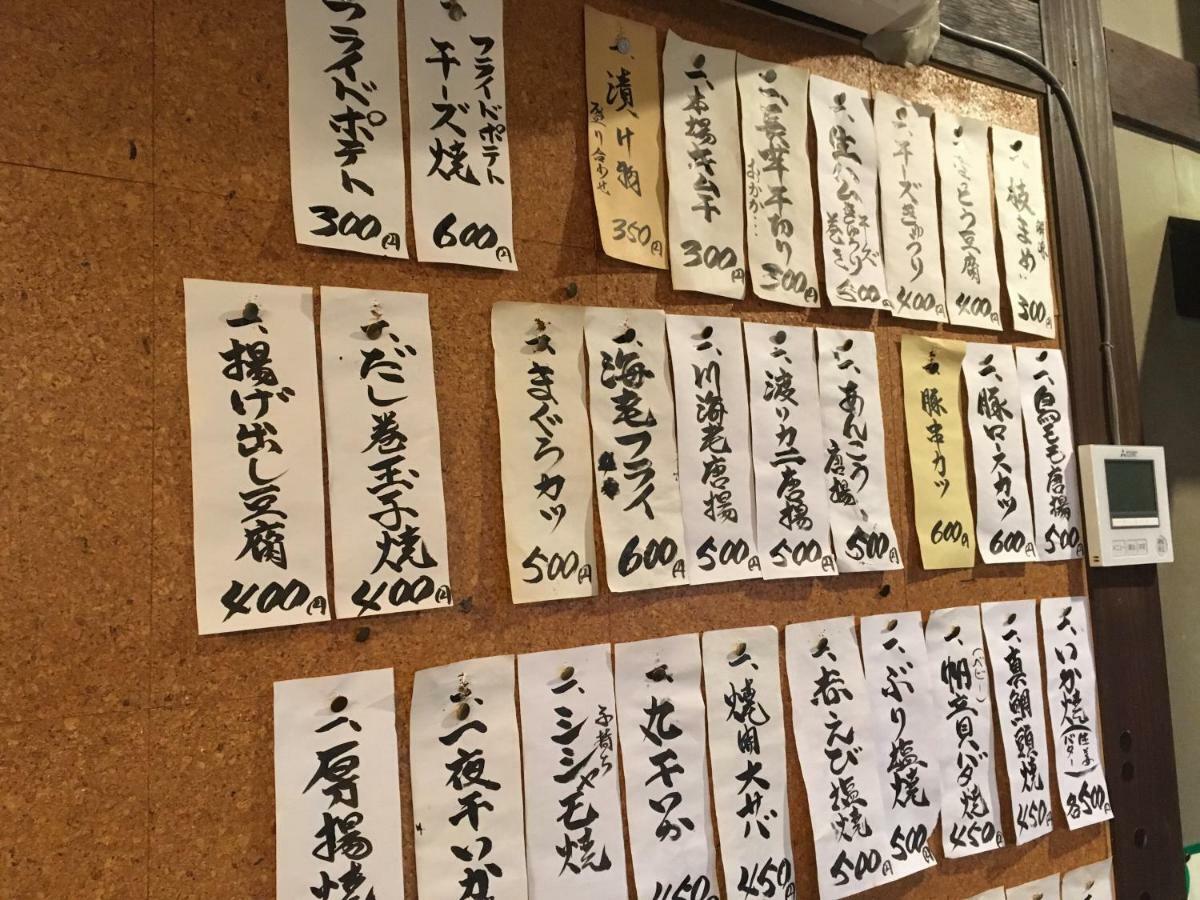 一、枝まめ
300円
豆腐
400円
一、チーズきゅうり
400円
一、生ハムきゅうり巻き
チーズ
500円
一、長芋千切り
おかか…
300円
一、本場キムチ
300円
一、漬け物
盛り合わせ
350円
フライドポテト
チーズ焼
600円
フライドポテト
300円
一、鳥もも唐揚
500円
一、豚ロースカツ
600円
一、豚串カツ
600円
一、あんこう
唐揚
500円
一、渡りカニ唐揚
500円
一、川海老唐揚
500円
一、海老フライ
600円
一、まぐろカツ
500円
一、だし巻玉子焼
400円
一、揚げ出し豆腐
400円
一、いか焼(生姜バター)
各500円
一、真鯛頭焼
450円
(ベビー)
一、帆立貝バタ焼
450円
一、ぶり塩焼
500円
一、赤えび塩焼
500円
一、焼開大サバ
450円
一、丸干いか
450円
子持ち
一、シシャモ焼
一、一夜干いか
一、厚揚焼